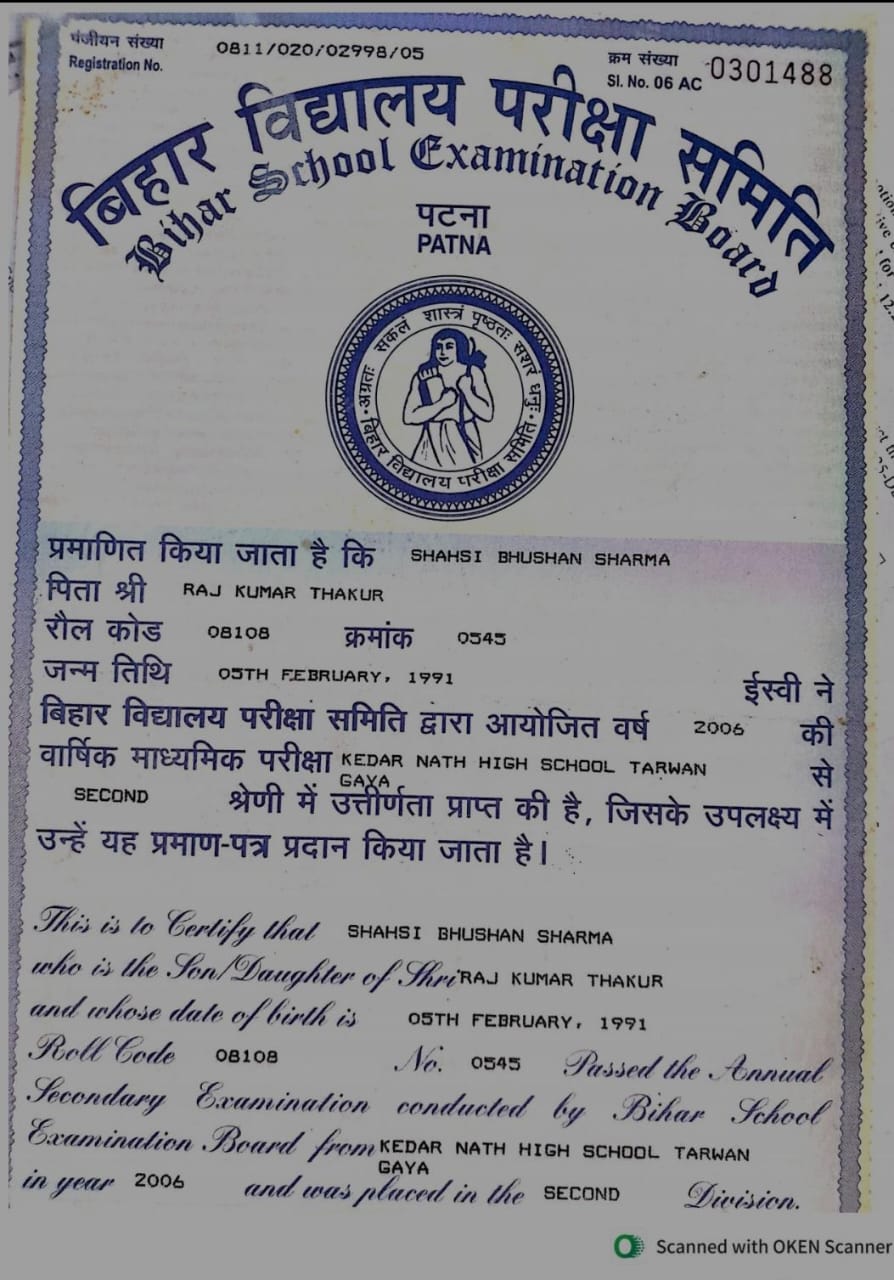 पंजीयन संख्या 0811/020/02998/05 क्रम संख्या
Registration No. Sl. No. 06 AC 0301488
बिहार विद्यालय परीक्षा समिति
Bihar School Examination Board
पटना
PATNA
अग्रतः सकलं शास्त्रं पृष्ठतः सशरं धनुः
बिहार विद्यालय परीक्षा समिति
प्रमाणित किया जाता है कि SHAHSI BHUSHAN SHARMA
पिता श्री RAJ KUMAR THAKUR
रौल कोड 08108 क्रमांक 0545
जन्म तिथि 05TH FEBRUARY, 1991 ईस्वी ने
बिहार विद्यालय परीक्षा समिति द्वारा आयोजित वर्ष 2006 की
वार्षिक माध्यमिक परीक्षा KEDAR NATH HIGH SCHOOL TARWAN से
GAYA
SECOND श्रेणी में उत्तीर्णता प्राप्त की है, जिसके उपलक्ष्य में
उन्हें यह प्रमाण-पत्र प्रदान किया जाता है।
This is to Certify that SHAHSI BHUSHAN SHARMA
who is the Son/Daughter of Shri RAJ KUMAR THAKUR
and whose date of birth is 05TH FEBRUARY, 1991
Roll Code 08108 No. 0545 Passed the Annual
Secondary Examination conducted by Bihar School
Examination Board from KEDAR NATH HIGH SCHOOL TARWAN
GAYA
in year 2006 and was placed in the SECOND Division.
Scanned with OKEN Scanner